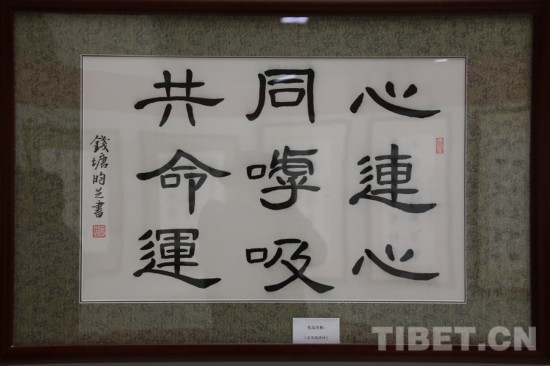 心連心
同嘑吸
共命運
錢塘昀芝書
TIBET.CN